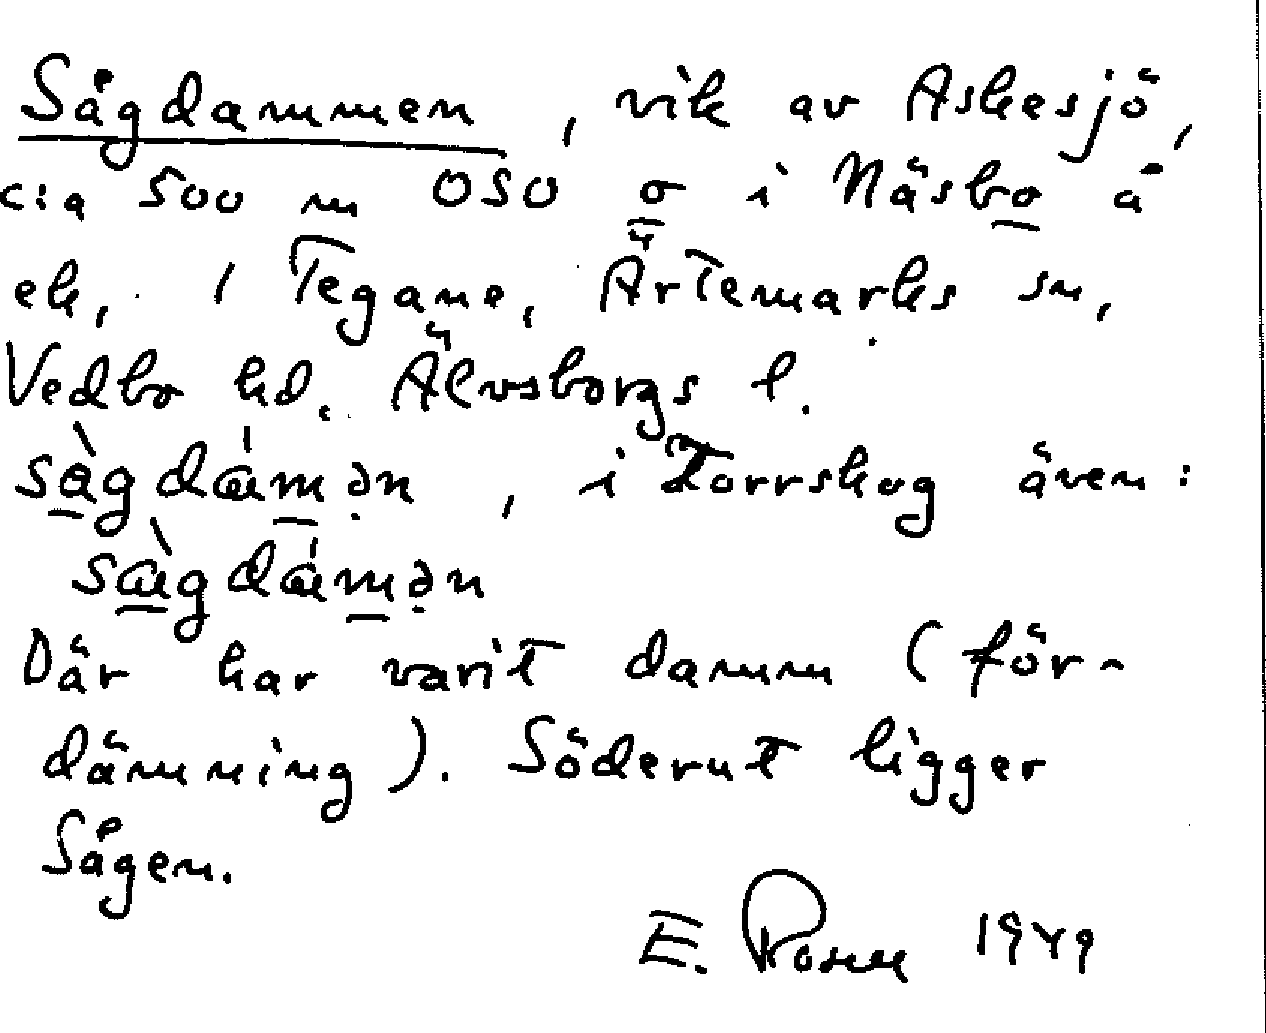 Sågdammen, vik av Askesjö,
c:a 500 m OSO o i Näsbo å
ek, 1 Tegane, Ärtemarks sn,
Vedbo hd. Älvsborgs l.
sàgdámən, i Torrskog även:
sàgdámən
Där har varit damm (för-
dämning). Söderut ligger
Sågen.
E. 1949